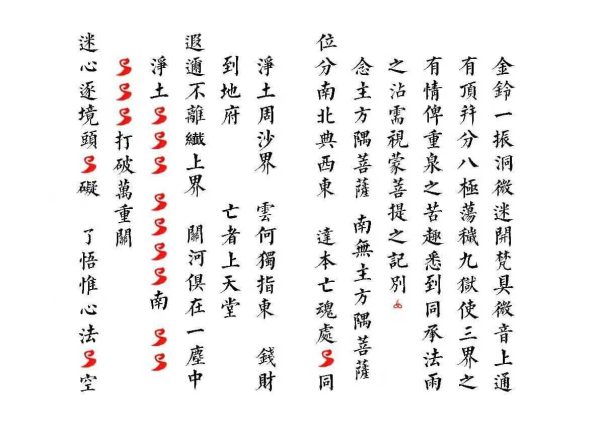 金鈴一振洞微迷開梵具微音上通
有頂幷分八極蕩穢九獄使三界之
有情俾重泉之苦趣悉到同承法雨
之沾需視蒙菩提之記別
念主方隅菩薩 南無主方隅菩薩
位分南北典西東 達本亡魂處同
淨土周沙界 雲何獨指東 錢財
到地府 亡者上天堂
遐邇不離纖上界 關河俱在一塵中
淨土 南
打破萬重關
迷心逐境頭礙 了悟惟心法空